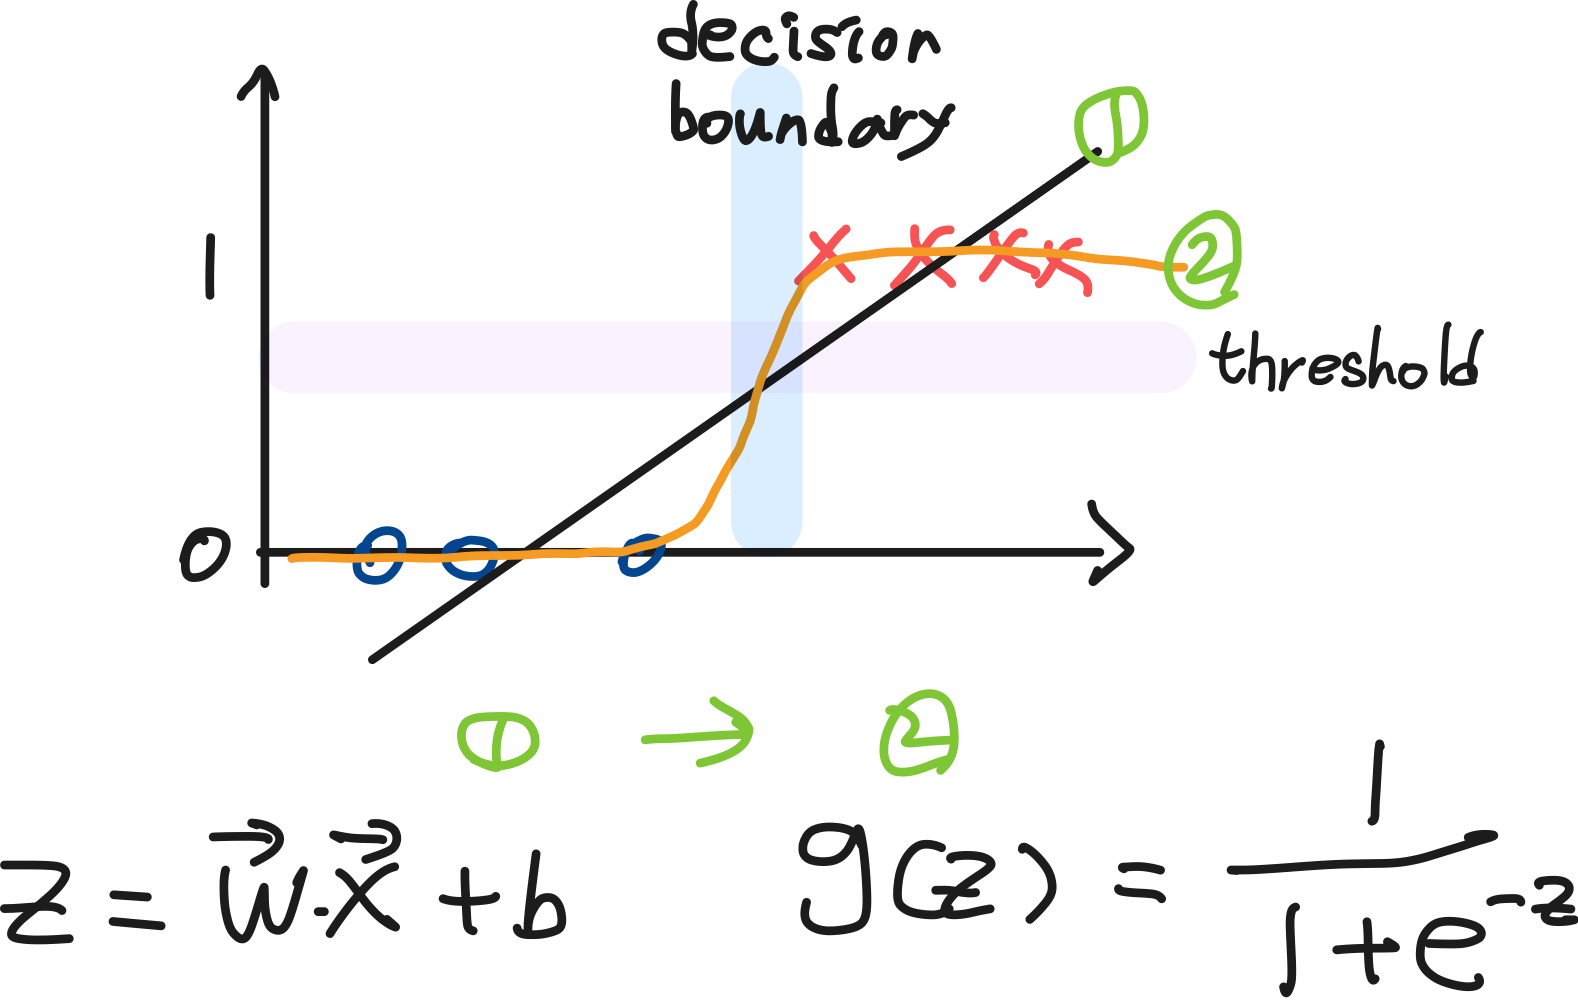 decision
boundary
①
1
②
threshold
0
① → ②
z = w⃗·x⃗ + b
g(z) = 1 / 1+e^-z